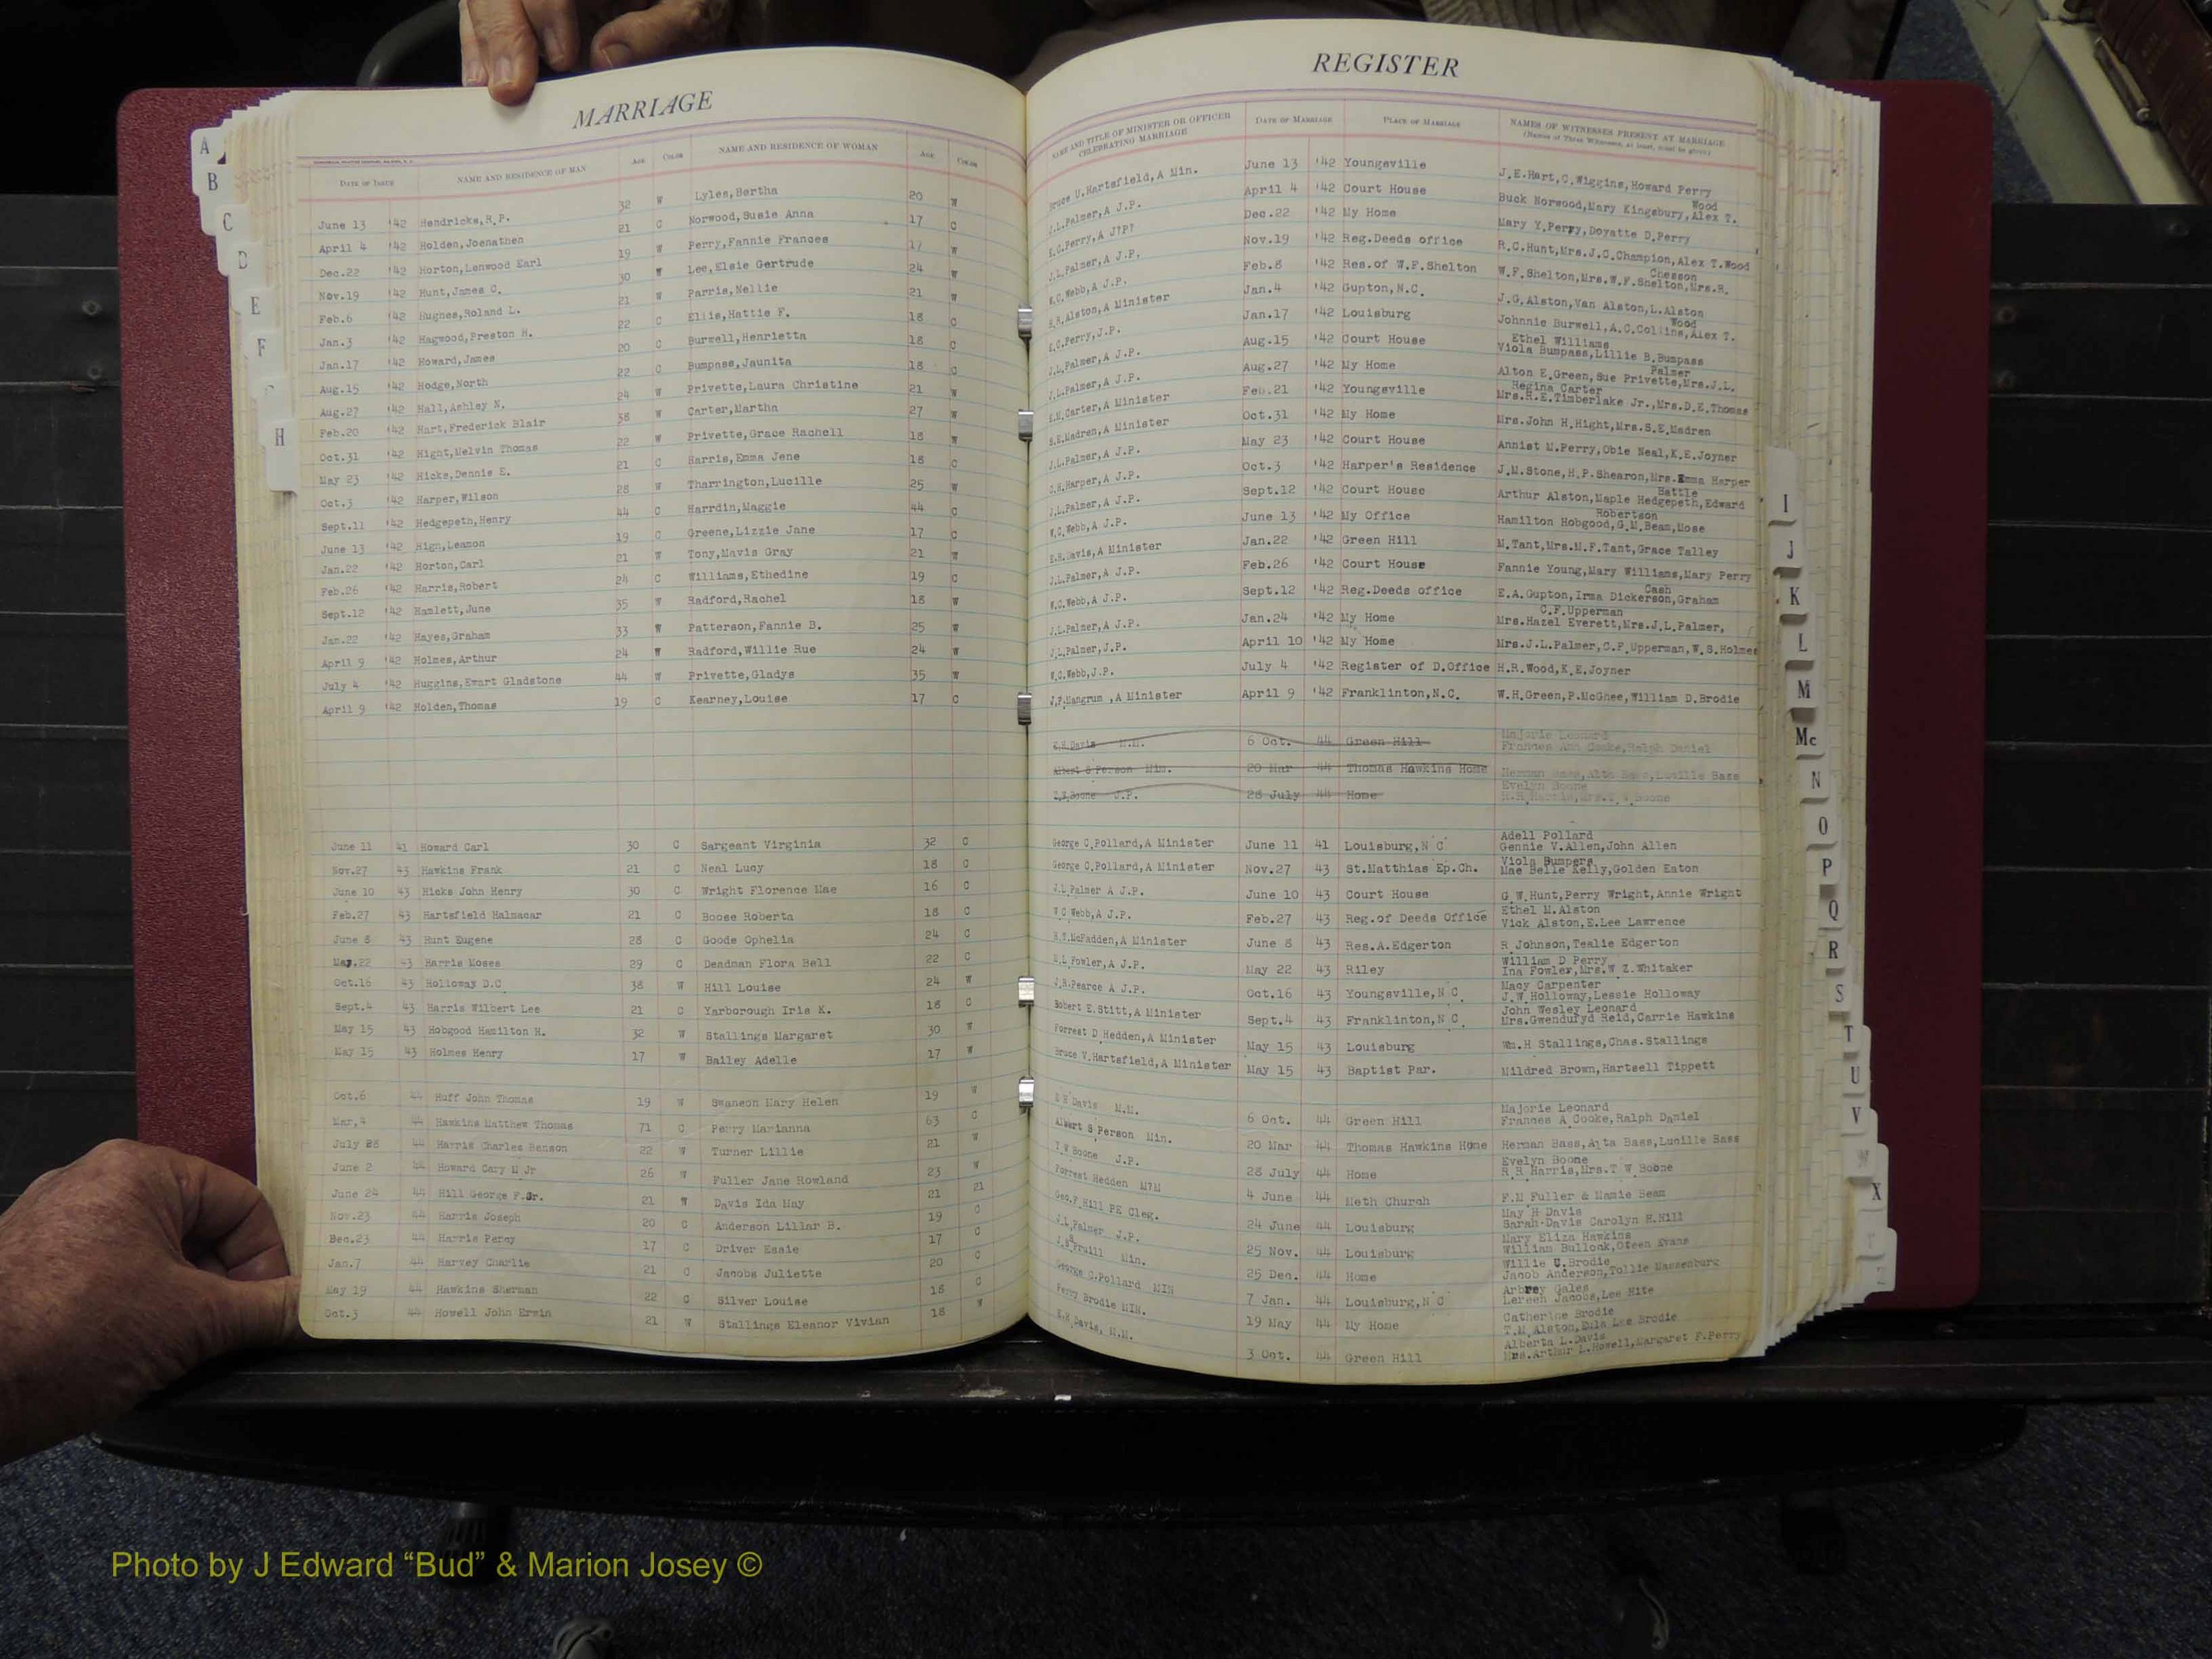 MARRIAGE
DATE OF ISSUE NAME AND RESIDENCE OF MAN AGE COLOR NAME AND RESIDENCE OF WOMAN AGE COLOR
June 13 '42 Hendricks,R.P. 32 W Lyles,Bertha 20 W
April 4 '42 Holden,Joenathen 21 C Norwood,Susie Anna 17 C
Dec.22 '42 Horton,Lenwood Earl 19 W Perry,Fannie Frances 17 W
Nov.19 '42 Hunt,James C. 30 W Lee,Elsie Gertrude 24 W
Feb.6 '42 Hughes,Roland L. 21 W Parris,Nellie 21 W
Jan.3 '42 Hagwood,Preston H. 22 C Ellis,Hattie F. 18 C
Jan.17 '42 Howard,James 20 C Burwell,Henrietta 18 C
Aug.15 '42 Hodge,North 22 C Bumpass,Jaunita 18 C
Aug.27 '42 Hall,Ashley N. 24 W Privette,Laura Christine 21 W
Feb.20 '42 Hart,Frederick Blair 38 W Carter,Martha 27 W
Oct.31 '42 Hight,Melvin Thomas 22 W Privette,Grace Rachell 18 W
May 23 '42 Hicks,Dennis E. 21 C Harris,Emma Jene 18 C
Oct.3 '42 Harper,Wilson 28 W Tharrington,Lucille 25 W
Sept.11 '42 Hedgepeth,Henry 44 C Harrdin,Maggie 44 C
June 13 '42 High,Leamon 19 C Greene,Lizzie Jane 17 C
Jan.22 '42 Horton,Carl 21 W Tony,Mavis Gray 21 W
Feb.26 '42 Harris,Robert 24 C Williams,Ethedine 19 C
Sept.12 '42 Hamlett,June 35 W Radford,Rachel 18 W
Jan.22 '42 Hayes,Graham 33 W Patterson,Fannie B. 25 W
April 9 '42 Holmes,Arthur 24 W Radford,Willie Rue 24 W
July 4 '42 Huggins,Ewart Gladstone 44 W Privette,Gladys 35 W
April 9 '42 Holden,Thomas 19 C Kearney,Louise 17 C
June 11 41 Howard Carl 30 C Sargeant Virginia 32 C
Nov.27 43 Hawkins Frank 21 C Neal Lucy 18 C
June 10 43 Hicks John Henry 30 C Wright Florence Mae 16 C
Feb.27 43 Hartsfield Halmacar 21 C Boose Roberta 18 C
June 8 43 Hunt Eugene 28 C Goode Ophelia 24 C
May.22 43 Harris Moses 29 C Deadman Flora Bell 22 C
Oct.16 43 Holloway D.C 38 W Hill Louise 24 W
Sept.4 43 Harris Wilbert Lee 21 C Yarborough Iris K. 18 C
May 15 43 Hobgood Hamilton H. 32 W Stallings Margaret 30 W
May 15 43 Holmes Henry 17 W Bailey Adelle 17 W
Oct.6 44 Huff John Thomas 19 W Swanson Mary Helen 19 W
Mar,4 44 Hawkins Matthew Thomas 71 C Perry Marianna 63 C
July 28 44 Harris Charles Benson 22 W Turner Lillie 21 W
June 2 44 Howard Cary M Jr 26 W Fuller Jane Rowland 23 W
June 24 44 Hill George F.Jr. 21 W Davis Ida May 21 21
Nov.23 44 Harris Joseph 20 C Anderson Lillar B. 19 C
Dec.23 44 Harris Percy 17 C Driver Essie 17 C
Jan.7 44 Harvey Charlie 21 C Jacobs Juliette 20 C
May 19 44 Hawkins Sherman 22 C Silver Louise 18 C
Oct.3 44 Howell John Erwin 21 W Stallings Eleanor Vivian 18 W
REGISTER
NAME AND TITLE OF MINISTER OR OFFICER CELEBRATING MARRIAGE DATE OF MARRIAGE PLACE OF MARRIAGE NAMES OF WITNESSES PRESENT AT MARRIAGE
(Names of Three Witnesses, at least, must be given)
Bruce U.Hartsfield,A Min. June 13 '42 Youngsville J.E.Hart,C.Wiggins,Howard Perry
Wood
J.L.Palmer,A J.P. April 4 '42 Court House Buck Norwood,Mary Kingsbury,Alex T.
E.C.Perry,A J?P? Dec.22 '42 My Home Mary Y.Perry,Doyatte D.Perry
J.L.Palmer,A J.P. Nov.19 '42 Reg.Deeds office R.C.Hunt,Mrs.J.C.Champion,Alex T.Wood
Chesson
W.C.Webb,A J.P. Feb.8 '42 Res.of W.F.Shelton W.F.Shelton,Mrs.W.F.Shelton,Mrs.R.
H.R.Alston,A Minister Jan.4 '42 Gupton,N.C. J.G.Alston,Van Alston,L.Alston
Wood
E.C.Perry,J.P. Jan.17 '42 Louisburg Johnnie Burwell,A.C.Collins,Alex T.
Ethel Williams
J.L.Palmer,A J.P. Aug.15 '42 Court House Viola Bumpass,Lillie B.Bumpass
Palmer
J.L.Palmer,A J.P. Aug.27 '42 My Home Alton E.Green,Sue Privette,Mrs.J.L.
Regina Carter
E.M.Carter,A Minister Feb.21 '42 Youngsville Mrs.R.E.Timberlake Jr.,Mrs.D.E.Thomas
S.E.Madren,A Minister Oct.31 '42 My Home Mrs.John H.Hight,Mrs.S.E.Madren
J.L.Palmer,A J.P. May 23 '42 Court House Annist M.Perry,Obie Neal,K.E.Joyner
J.H.Harper,A J.P. Oct.3 '42 Harper's Residence J.M.Stone,H.P.Shearon,Mrs.Emma Harper
Battle
J.L.Palmer,A J.P. Sept.12 '42 Court House Arthur Alston,Maple Hedgepeth,Edward
Robertson
W.C.Webb,A J.P. June 13 '42 My Office Hamilton Hobgood,G.M.Beam,Mose
E.H.Davis,A Minister Jan.22 '42 Green Hill M.Tant,Mrs.M.F.Tant,Grace Talley
J.L.Palmer,A J.P. Feb.26 '42 Court House Fannie Young,Mary Williams,Mary Perry
Cash
W.C.Webb,A J.P. Sept.12 '42 Reg.Deeds office E.A.Gupton,Irma Dickerson,Graham
C.F.Upperman
J.L.Palmer,A J.P. Jan.24 '42 My Home Mrs.Hazel Everett,Mrs.J.L.Palmer,
J.L.Palmer,J.P. April 10 '42 My Home Mrs.J.L.Palmer,C.F.Upperman,W.S.Holmes
W.C.Webb,J.P. July 4 '42 Register of D.Office H.R.Wood,K.E.Joyner
J.P.Mangrum ,A Minister April 9 '42 Franklinton,N.C. W.H.Green,P.McGhee,William D.Brodie
Majorie Leonard
E.H.Davis M.M. 6 Oct. 44 Green Hill Frances Ann Cooke,Ralph Daniel
Albert S Person Min. 20 Mar 44 Thomas Hawkins Home Herman Bass,Alta Bass,Lucille Bass
Evelyn Boone
T.W.Boone J.P. 28 July 44 Home R.H.Harris,Mrs.T W Boone
Adell Pollard
George C.Pollard,A Minister June 11 41 Louisburg,N C Gennie V.Allen,John Allen
Viola Bumpers
George C.Pollard,A Minister Nov.27 43 St.Matthias Ep.Ch. Mae Belle Kelly,Golden Eaton
J.L.Palmer A J.P. June 10 43 Court House G W.Hunt,Perry Wright,Annie Wright
Ethel M.Alston
W C Webb,A J.P. Feb.27 43 Reg.of Deeds Office Vick Alston,E.Lee Lawrence
H.T.McFadden,A Minister June 8 43 Res.A.Edgerton R Johnson,Tealie Edgerton
William D Perry
E.L Fowler,A J.P. May 22 43 Riley Ina Fowler,Mrs.W Z.Whitaker
Macy Carpenter
J.R.Pearce A J.P. Oct.16 43 Youngsville,N C J.W.Holloway,Lessie Holloway
John Wesley Leonard
Robert E.Stitt,A Minister Sept.4 43 Franklinton,N C Mrs.Gwendufyd Reid,Carrie Hawkins
Forrest D.Hedden,A Minister May 15 43 Louisburg Wm.H Stallings,Chas.Stallings
Bruce V.Hartsfield,A Minister May 15 43 Baptist Par. Mildred Brown,Hartsell Tippett
Majorie Leonard
E H Davis M.M. 6 Oct. 44 Green Hill Frances A Cooke,Ralph Daniel
Albert S Person Min. 20 Mar 44 Thomas Hawkins Home Herman Bass,Alta Bass,Lucille Bass
Evelyn Boone
T W Boone J.P. 28 July 44 Home R.H Harris,Mrs.T W Boone
Forrest Hedden M?M 4 June 44 Meth Church F.M Fuller & Mamie Beam
May H Davis
Geo.F Hill PE Cleg. 24 June 44 Louisburg Sarah-Davis Carolyn H.Hill
Mary Eliza Hawkins
J.L.Palmer J.P. 25 Nov. 44 Louisburg William Bullock,Oteen Evans
Willie U.Brodie
J.S.Pruill Min. 25 Dec. 44 Home Jacob Anderson,Tollie Massenburg
Arbrey Gales
George C.Pollard MIN 7 Jan. 44 Louisburg,N C Lereen Jacobs,Lee Hite
Catherine Brodie
Perry Brodie MIN. 19 May 44 My Home T.M Alston,Eula Lee Brodie
Alberta L.Davis
E.H Davis, M.M. 3 Oct. 44 Green Hill Mrs.Arthur L.Howell,Margaret F.Perry
A
B
C
D
E
F
H
I
J
K
L
M
Mc
N
O
P
Q
R
S
T
U
V
W
X
Y
Z
Photo by J Edward “Bud” & Marion Josey ©